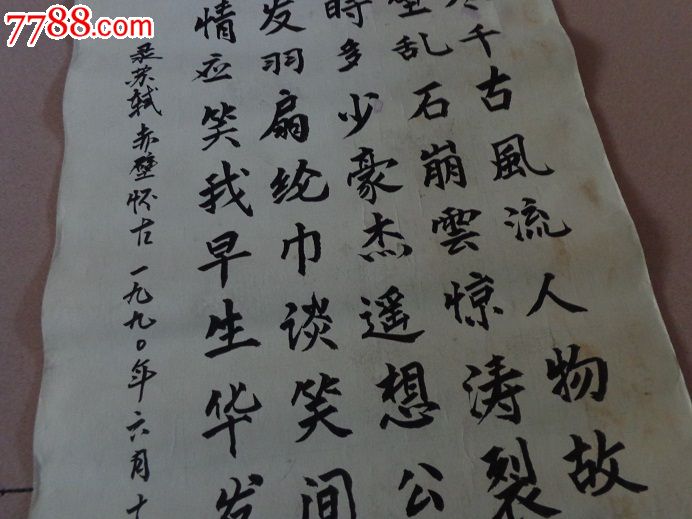 7788.com
千古風流人物故
乱石崩雲惊涛裂
時多少豪杰遥想公
发羽扇纶巾谈笑间
情应笑我早生华发
录苏轼赤壁怀古 一九九〇年六月十